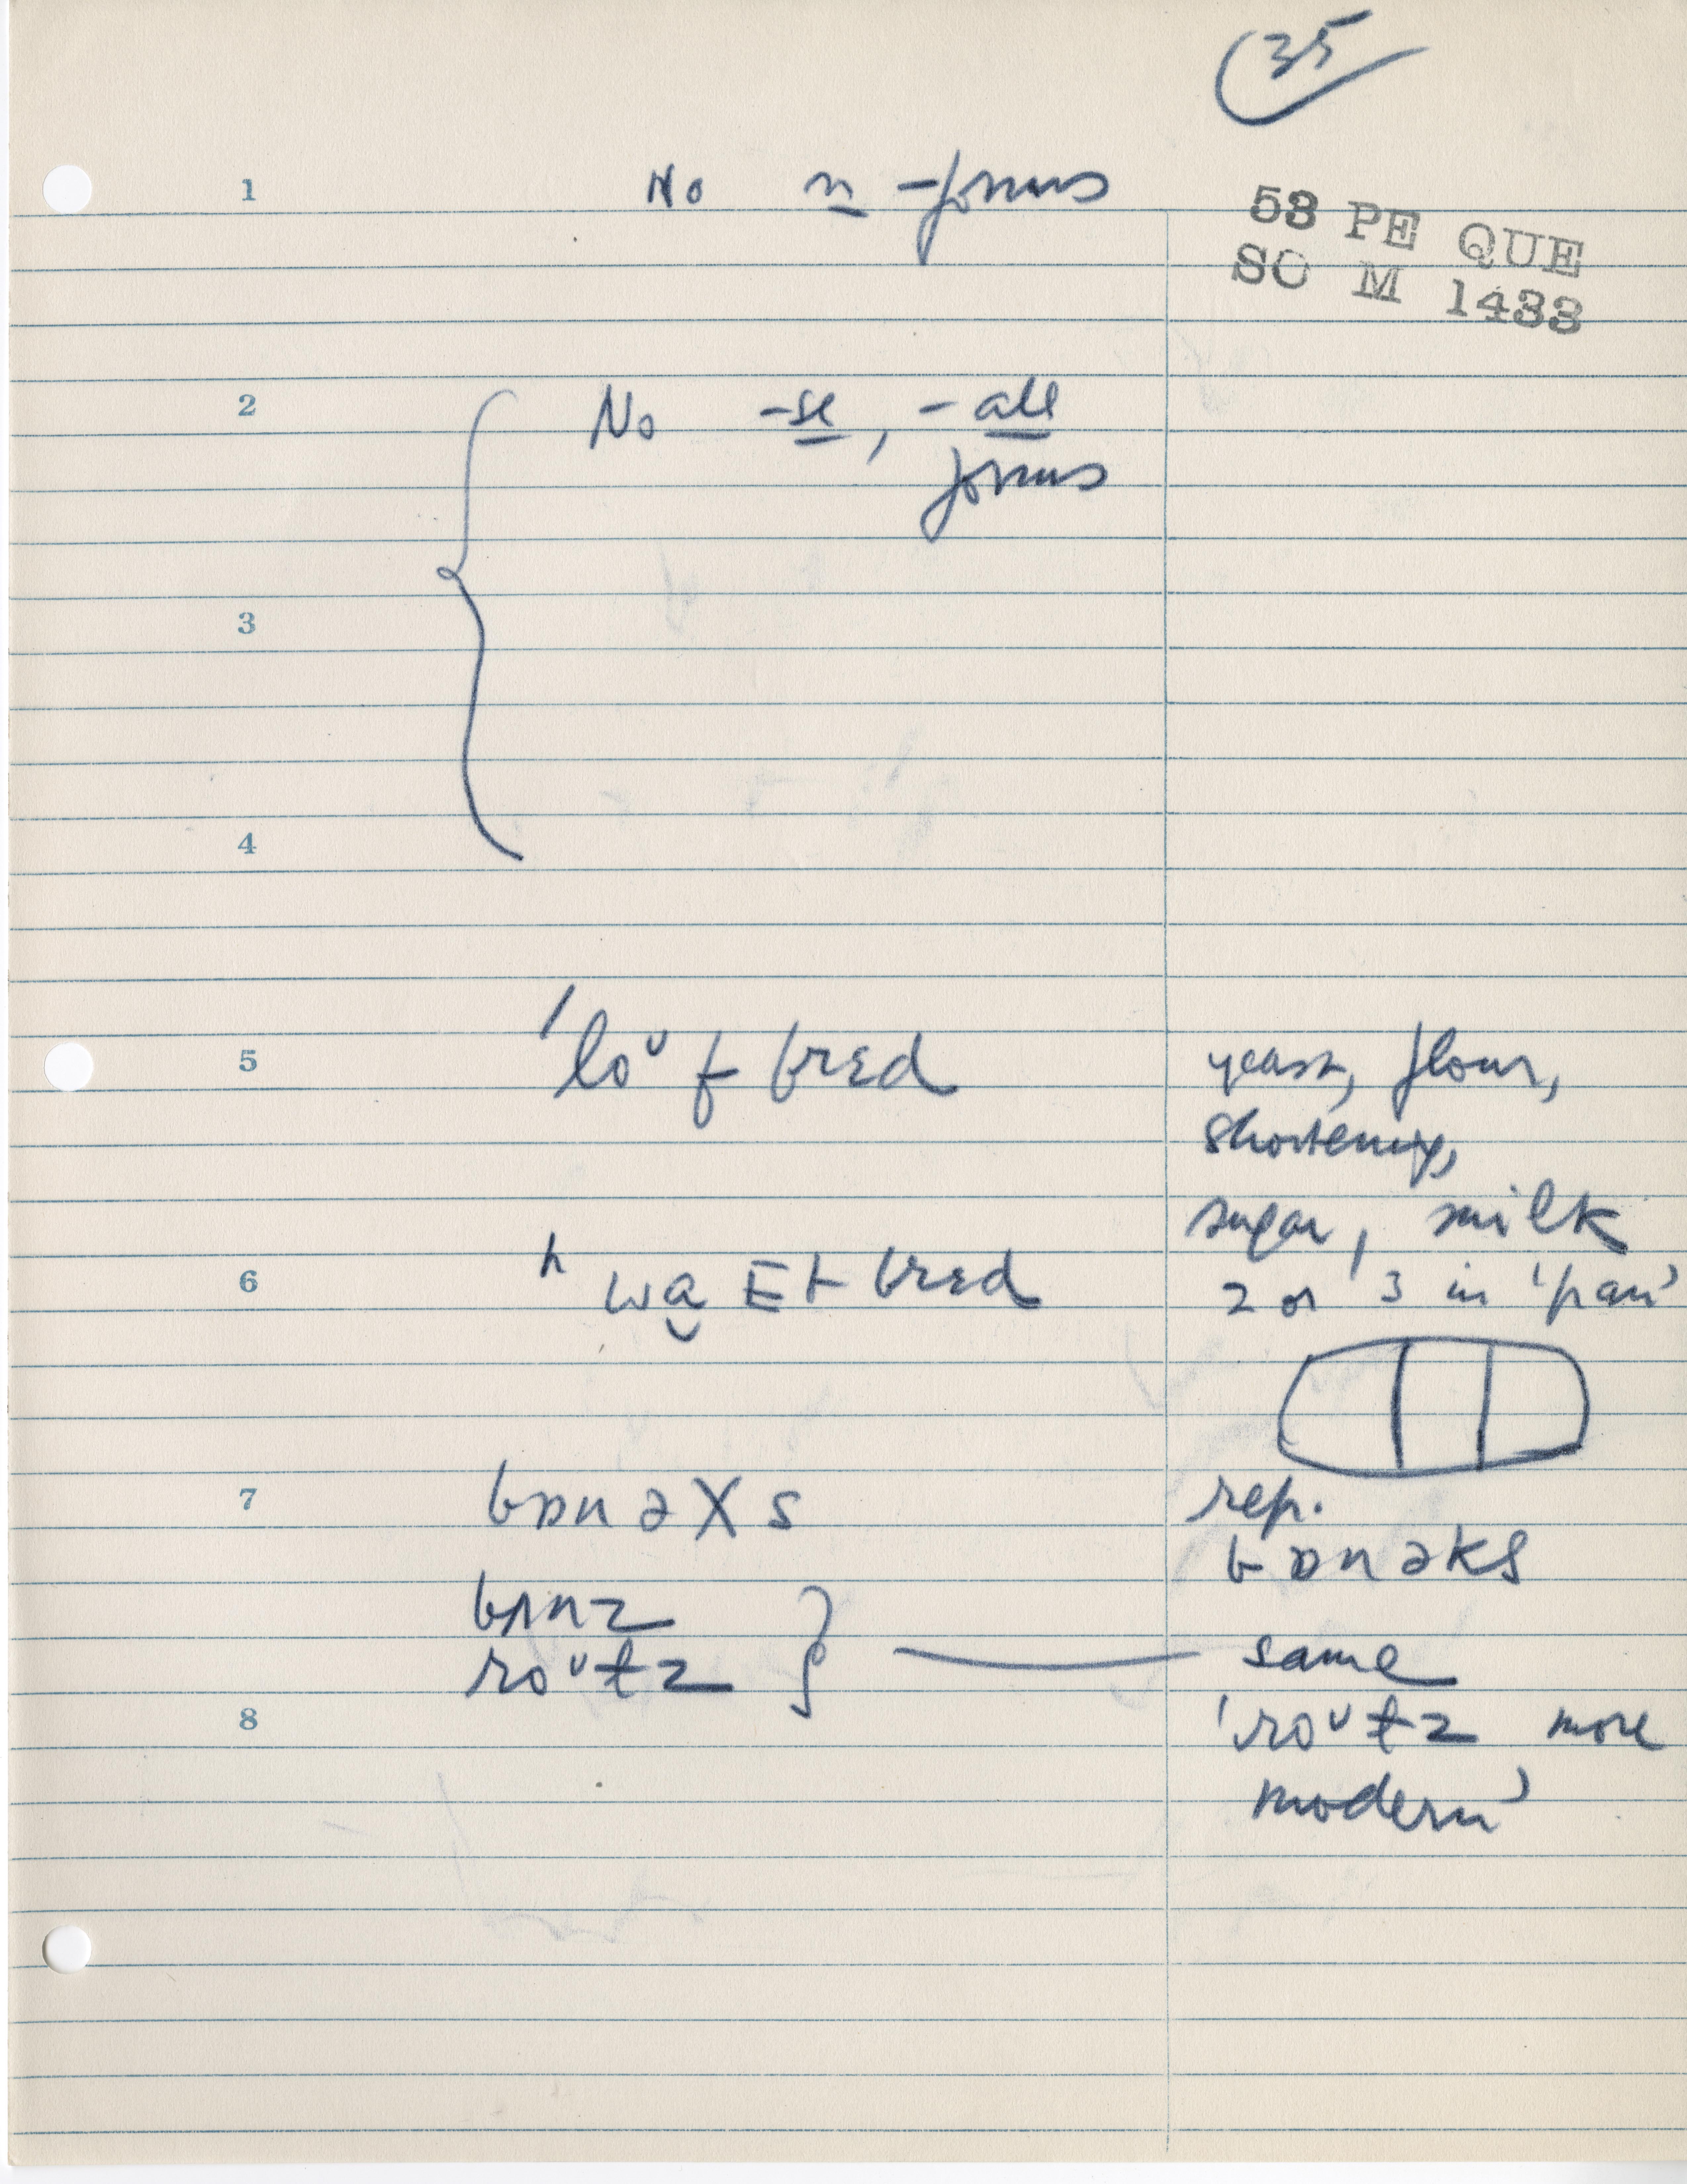 35
1 No n -forms
53 PE QUE
SO M 1433
2 No -se, -all
forms
3
4
5 ˈloᶷf brɛd
yeast, flour,
shortening,
sugar, milk
6 ʰwa̮ɪt brɛd
2 or 3 in 'pan'
7 bɒnəXs
rep.
bɒnəks
bʌnz
roᶷɫz } same
8 'roᶷɫz more
modern'